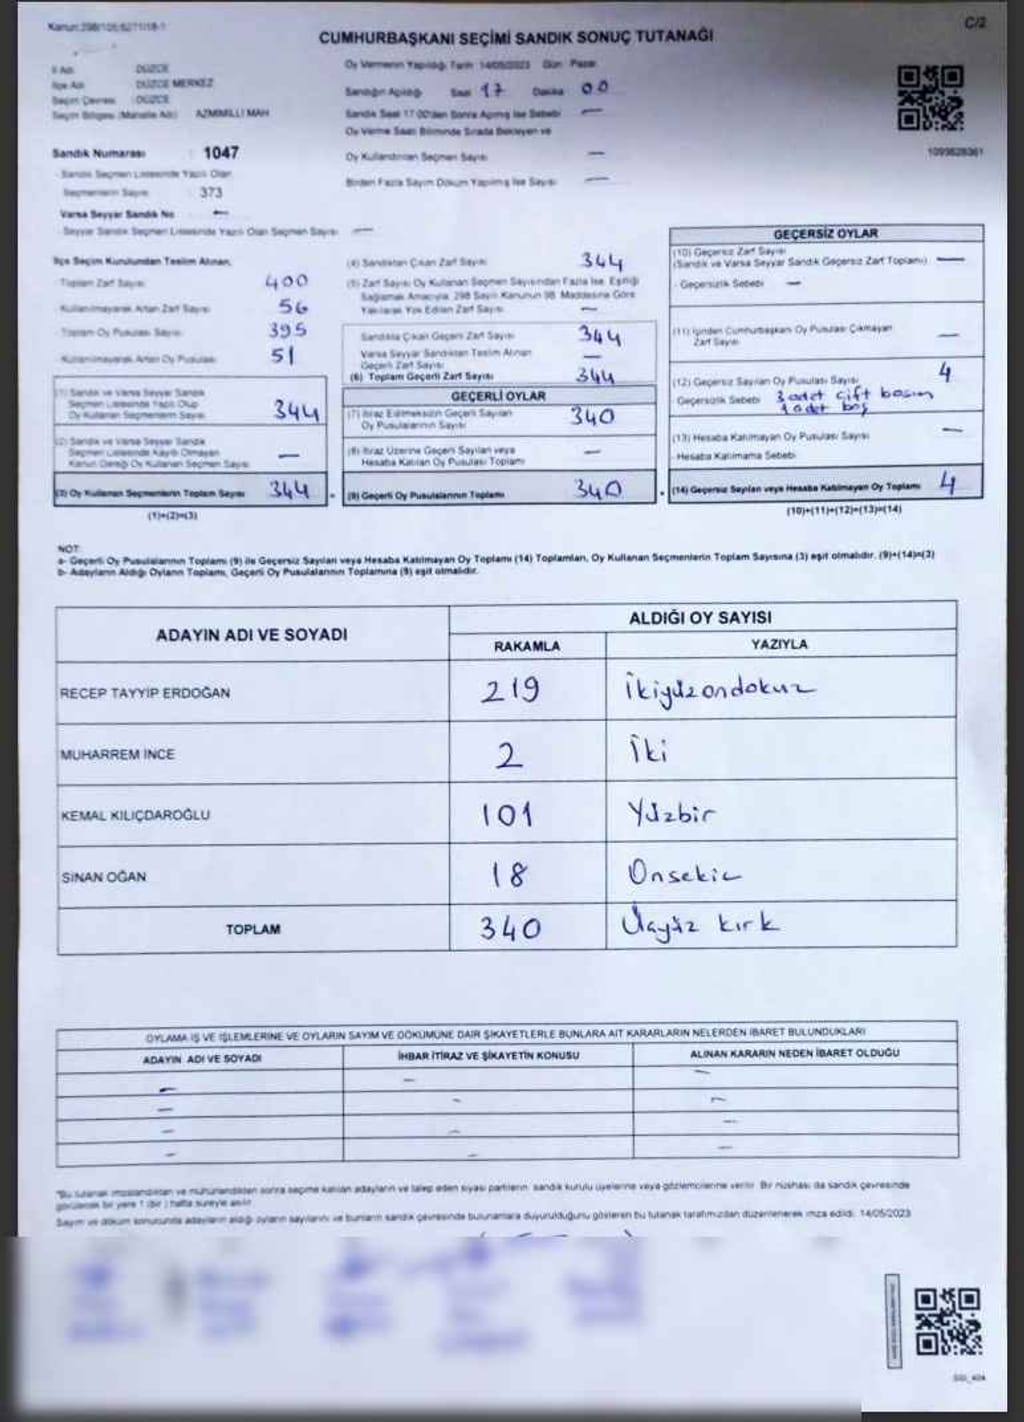 Kanun:298/105;6271/18-1
C/2
CUMHURBAŞKANI SEÇİMİ SANDIK SONUÇ TUTANAĞI
İl Adı : DÜZCE
İlçe Adı : DÜZCE MERKEZ
Seçim Çevresi : DÜZCE
Seçim Bölgesi (Mahalle Adı) : AZMİMİLLİ MAH
Sandık Numarası : 1047
- Sandık Seçmen Listesinde Yazılı Olan
Seçmenlerin Sayısı : 373
Varsa Seyyar Sandık No : —
- Seyyar Sandık Seçmen Listesinde Yazılı Olan Seçmen Sayısı : —
Oy Vermenin Yapıldığı Tarih: 14/05/2023 Gün: Pazar
Sandığın Açılışı Saat 17 Dakika 00
Sandık Saat 17:00'den Sonra Açılmış İse Sebebi —
Oy Verme Saati Bitiminde Sırada Bekleyen ve
Oy Kullandırılan Seçmen Sayısı —
Birden Fazla Sayım Döküm Yapılmış İse Sayısı —
1093628361
İlçe Seçim Kurulundan Teslim Alınan;
- Toplam Zarf Sayısı : 400
- Kullanılmayarak Artan Zarf Sayısı : 56
- Toplam Oy Pusulası Sayısı : 395
- Kullanılmayarak Artan Oy Pusulası : 51
(1) Sandık ve Varsa Seyyar Sandık
Seçmen Listesinde Yazılı Olup
Oy Kullanan Seçmenlerin Sayısı 344
(2) Sandık ve Varsa Seyyar Sandık
Seçmen Listesinde Kayıtlı Olmayan
Kanun Gereği Oy Kullanan Seçmen Sayısı —
(3) Oy Kullanan Seçmenlerin Toplam Sayısı 344
(1)+(2)=(3)
(4) Sandıktan Çıkan Zarf Sayısı 344
(5) Zarf Sayısı Oy Kullanan Seçmen Sayısından Fazla İse, Eşitliği
Sağlamak Amacıyla, 298 Sayılı Kanunun 98. Maddesine Göre
Yakılarak Yok Edilen Zarf Sayısı —
Sandıkta Çıkan Geçerli Zarf Sayısı 344
Varsa Seyyar Sandıktan Teslim Alınan
Geçerli Zarf Sayısı —
(6) Toplam Geçerli Zarf Sayısı 344
GEÇERLİ OYLAR
(7) İtiraz Edilmeksizin Geçerli Sayılan
Oy Pusulalarının Sayısı 340
(8) İtiraz Üzerine Geçerli Sayılan veya
Hesaba Katılan Oy Pusulası Toplamı —
(9) Geçerli Oy Pusulalarının Toplamı 340
GEÇERSİZ OYLAR
(10) Geçersiz Zarf Sayısı
(Sandık ve Varsa Seyyar Sandık Geçersiz Zarf Toplamı) —
- Geçersizlik Sebebi : —
(11) İçinden Cumhurbaşkanı Oy Pusulası Çıkmayan
Zarf Sayısı —
(12) Geçersiz Sayılan Oy Pusulası Sayısı 4
Geçersizlik Sebebi : 3 adet çift basım
1 adet boş
(13) Hesaba Katılmayan Oy Pusulası Sayısı —
- Hesaba Katılmama Sebebi
(14) Geçersiz Sayılan veya Hesaba Katılmayan Oy Toplamı 4
(10)+(11)+(12)+(13)=(14)
NOT:
a- Geçerli Oy Pusulalarının Toplamı (9) ile Geçersiz Sayılan veya Hesaba Katılmayan Oy Toplamı (14) Toplamları, Oy Kullanan Seçmenlerin Toplam Sayısına (3) eşit olmalıdır. (9)+(14)=(3)
b- Adayların Aldığı Oyların Toplamı, Geçerli Oy Pusulalarının Toplamına (9) eşit olmalıdır.
ADAYIN ADI VE SOYADI
ALDIĞI OY SAYISI
RAKAMLA YAZIYLA
RECEP TAYYİP ERDOĞAN 219 İkiyüzondokuz
MUHARREM İNCE 2 İki
KEMAL KILIÇDAROĞLU 101 Yüzbir
SİNAN OĞAN 18 Onsekiz
TOPLAM 340 Üçyüz kırk
OYLAMA İŞ VE İŞLEMLERİNE VE OYLARIN SAYIM VE DÖKÜMÜNE DAİR ŞİKAYETLERLE BUNLARA AİT KARARLARIN NELERDEN İBARET BULUNDUKLARI
ADAYIN ADI VE SOYADI İHBAR İTİRAZ VE ŞİKAYETİN KONUSU ALINAN KARARIN NEDEN İBARET OLDUĞU
— — —
— — —
— — —
— — —
*Bu tutanak imzalandıktan ve mühürlendikten sonra seçime katılan adayların ve talep eden siyasi partilerin, sandık kurulu üyelerine veya gözlemcilerine verilir. Bir nüshası da sandık çevresinde
görülecek bir yere 1 (bir) hafta süreyle asılır.
Sayım ve döküm sonucunda adayların aldığı oyların sayılarını ve bunların sandık çevresinde bulunanlara duyurulduğunu gösteren bu tutanak tarafımızdan düzenlenerek imza edildi. 14/05/2023